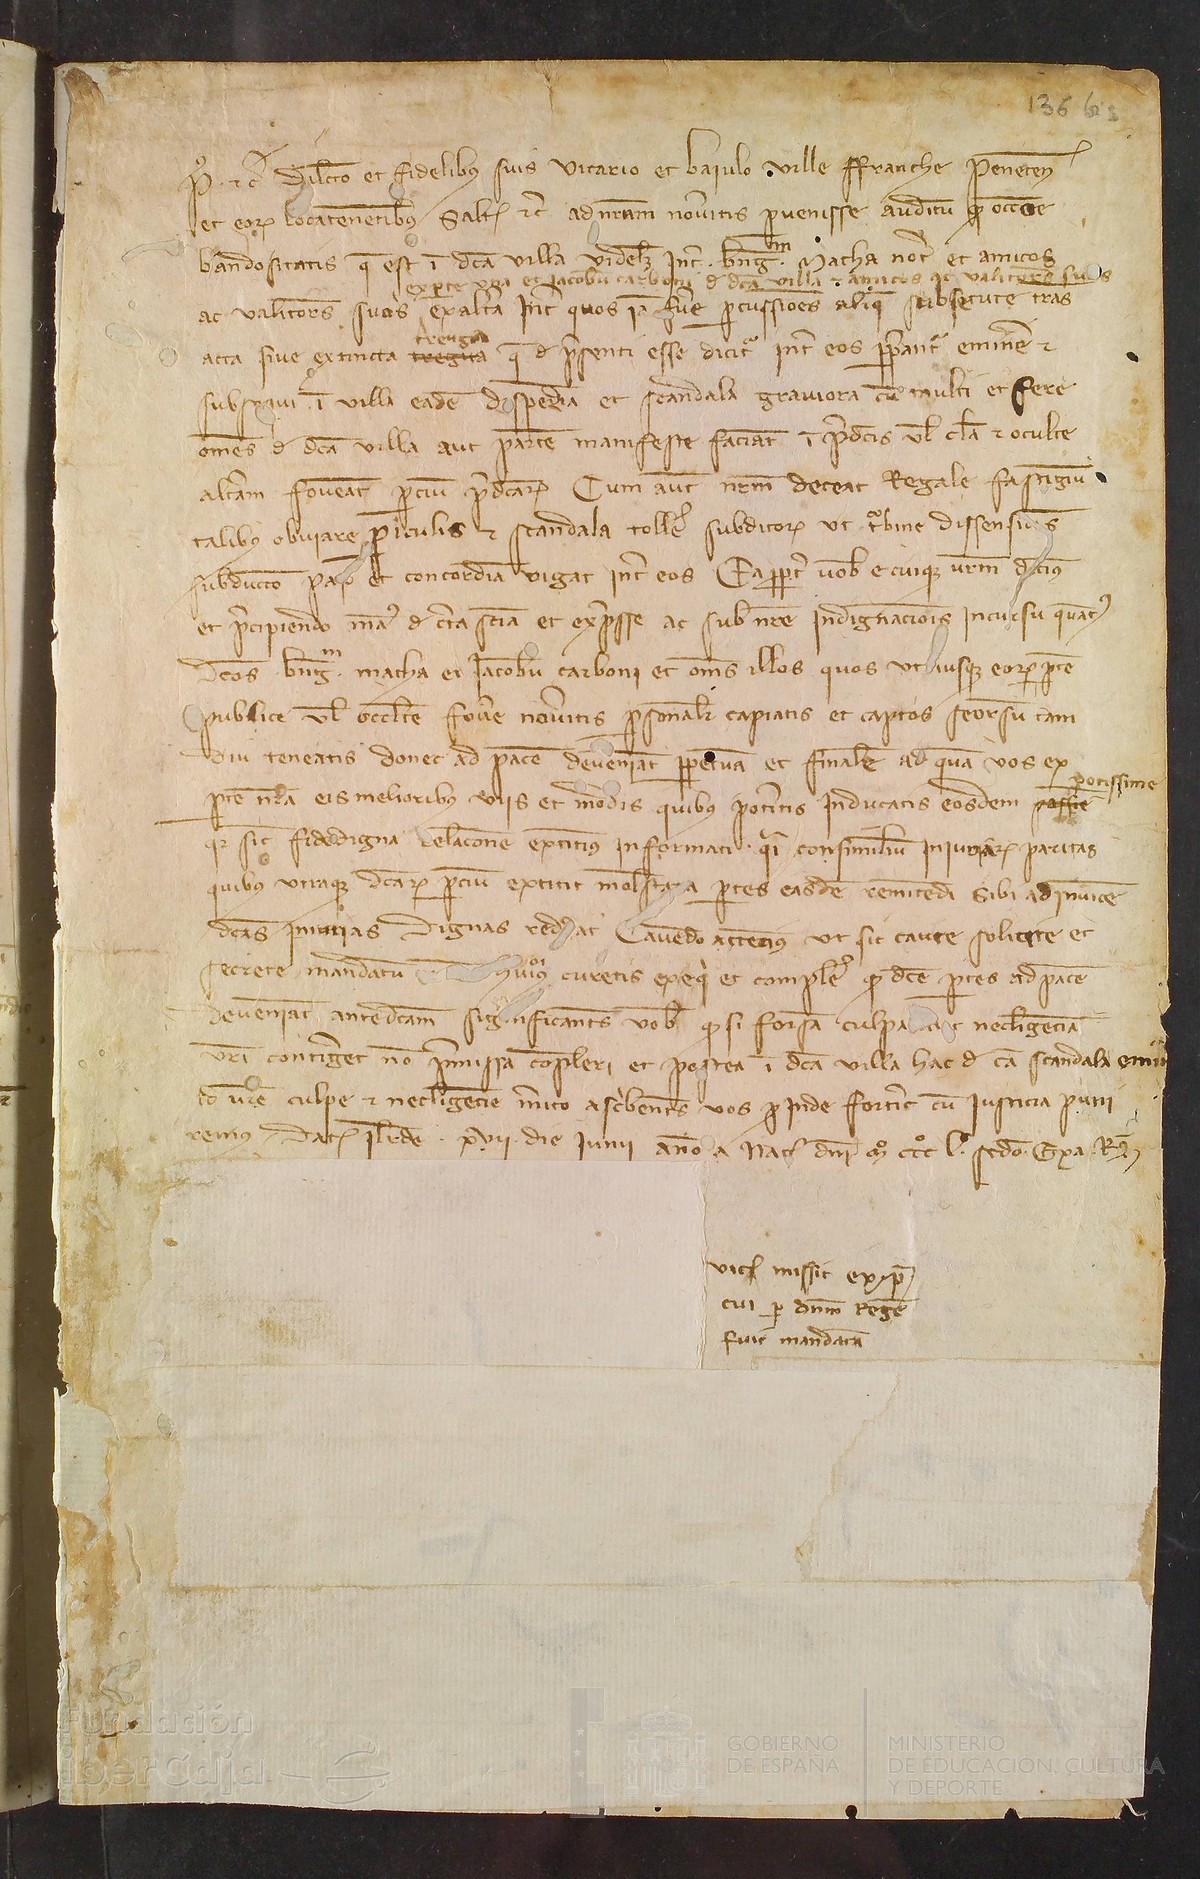 136 bis
P. etc. Dilecto et fidelibus suis vicario et baiulo ville ffranche Peneten
et eorum locatenentibus Saltem etc. ad nostram noveritis pervenisse auditum quod occasione
bandositatis que est in dicta villa videlicet inter . berengarium . Macha notarium et amicos
ex parte una et Jacobum carboni de dicta villa et amicos ac valitores suos
ac valitores suos ex altera inter quos iam fuere percussiones aliqua subsecute tras
acta sive extincta tregua treuga que de presenti esse dicitur inter eos eminere et
subsequi in villa eadem dispendia et scandala graviora cum multi et fere
omnes de dicta villa aut partem manifeste faciant in predictis vel clam et oculte
alteram foveant partium predictarum Cum autem nostrum deceat Regale fastigium
talibus obviare periculis et scandala tollere subditorum ut turbine dissensionis
subducto pax et concordia vigeat inter eos Ea propter vobis et cuique vestrum dicimus
et precipiendo mandamus de certa sciencia et expresse ac sub nostre Indignacionis Incursu quatenus
dictos . berengarium . macha et Jacobum carboni et omnes illos quos utriusque eorum partem
publice vel occulte fovere noveritis personaliter capiatis et captos seorsum tam
diu teneatis donec ad pacem deveniant perpetuam et finalem ad quam vos ex
parte nostra eis melioribus viis et modis quibus poteritis inducatis eosdem potissime
quia sic fidedigna relacione extitimus informati . quod consimilium iniuriarum paritas
quibus utraque dictarum partium extitit molestata partes easdem remitendi sibi adinvicem
dictas iniurias dignas reddat Cavendo actencius ut sic caute solicite et
secrete mandatum huiusmodi curetis exequi et complere quod dicte partes ad pacem
deveniant antedictam significantes vobis quod si forsan culpa aut necligencia
vestri contigeret non premissa compleri et postea in dicta villa hac de causa scandala
id vestre culpe et necligencie merito ascribentes vos proinde fortiter cum iusticia puni
remus Datum Ilerde . XVII . die Iunii anno a Nat. domini M CCC L secundo . Exa. R
vices missit exp
cui per dominum Regem
fuit mandata
Fundación
iberCaja
GOBIERNO
DE ESPAÑA
MINISTERIO
DE EDUCACIÓN, CULTURA
Y DEPORTE